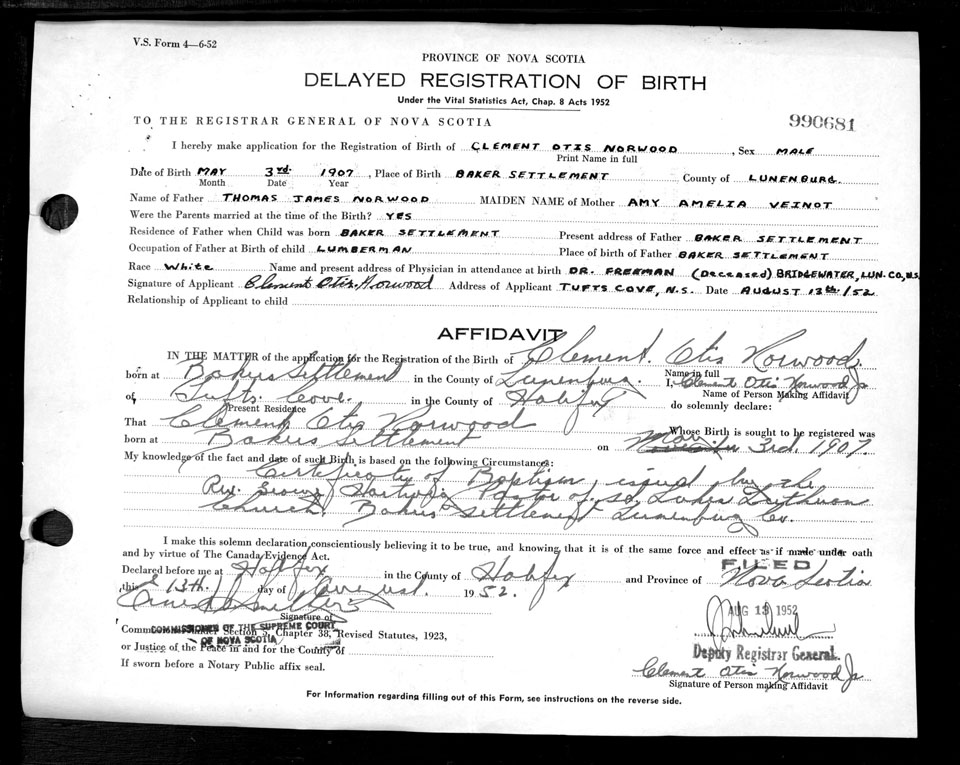 V.S. Form 4—6-52
PROVINCE OF NOVA SCOTIA
DELAYED REGISTRATION OF BIRTH
Under the Vital Statistics Act, Chap. 8 Acts 1952
TO THE REGISTRAR GENERAL OF NOVA SCOTIA
990681
I hereby make application for the Registration of Birth of CLEMENT OTIS NORWOOD, Sex MALE
Print Name in full
Date of Birth MAY 3rd. 1907, Place of Birth BAKER SETTLEMENT County of LUNENBURG.
Month Date Year
Name of Father THOMAS JAMES NORWOOD MAIDEN NAME of Mother AMY AMELIA VEINOT
Were the Parents married at the time of the Birth? YES
Residence of Father when Child was born BAKER SETTLEMENT Present address of Father BAKER SETTLEMENT
Occupation of Father at Birth of child LUMBERMAN Place of birth of Father BAKER SETTLEMENT
Race White Name and present address of Physician in attendance at birth DR. FREEMAN (Deceased) BRIDGEWATER, LUN. CO, N.S.
Signature of Applicant Clement Otis Norwood Address of Applicant TUFTS COVE, N.S. Date AUGUST 13th/52
Relationship of Applicant to child
AFFIDAVIT
IN THE MATTER of the application for the Registration of the Birth of Clement Otis Norwood
Name in full
born at Bakers Settlement in the County of Lunenburg. I, Clement Otis Norwood Jr
Name of Person Making Affidavit
of Tufts Cove in the County of Halifax do solemnly declare:
Present Residence
That Clement Otis Norwood Whose Birth is sought to be registered was
born at Bakers Settlement on May 3rd. 1907.
My knowledge of the fact and date of such Birth is based on the following Circumstances:
Certificate of Baptism, issued by the
Rev. Pastor of St Lukes Lutheran
Church. Bakers Settlement Lunenburg Co.
I make this solemn declaration conscientiously believing it to be true, and knowing that it is of the same force and effect as if made under oath
and by virtue of The Canada Evidence Act.
FILED
Declared before me at Halifax in the County of Halifax and Province of Nova Scotia
this 13th. day of August. 1952.
AUG 13 1952
Signature of
Commissioner under Section 5, Chapter 38, Revised Statutes, 1923,
COMMISSIONER OF THE SUPREME COURT
OF NOVA SCOTIA
or Justice of the Peace in and for the County of
Deputy Registrar General.
If sworn before a Notary Public affix seal.
Clement Otis Norwood Jr
Signature of Person making Affidavit
For Information regarding filling out of this Form, see instructions on the reverse side.